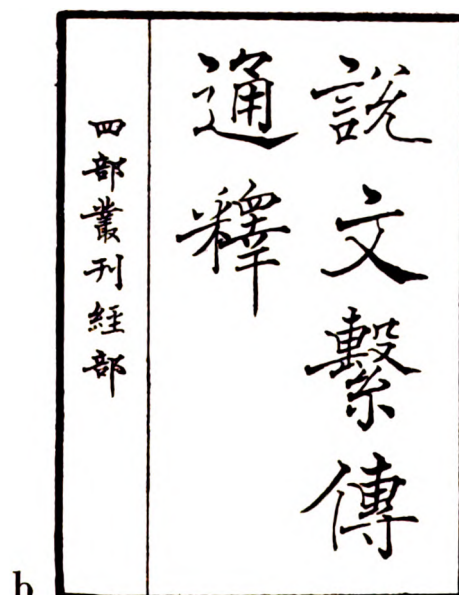 說文繫傳
通釋
四部叢刊經部
b